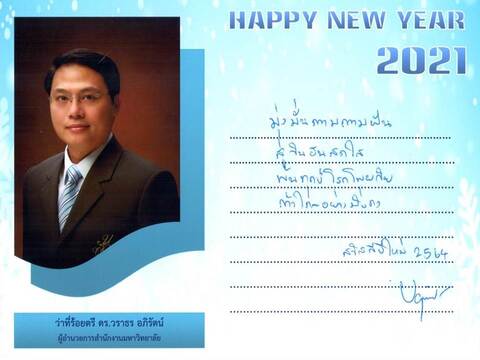 HAPPY NEW YEAR
2021
มุ่งมั่นตามความฝัน
สู่วันอันสดใส
พ้นทุกข์โรคโพยภัย
ก้าวไกลอย่างมั่นคง
สวัสดีปีใหม่ 2564
ว่าที่ร้อยตรี ดร.วราธร อภิรัตน์
ผู้อำนวยการสำนักงานมหาวิทยาลัย